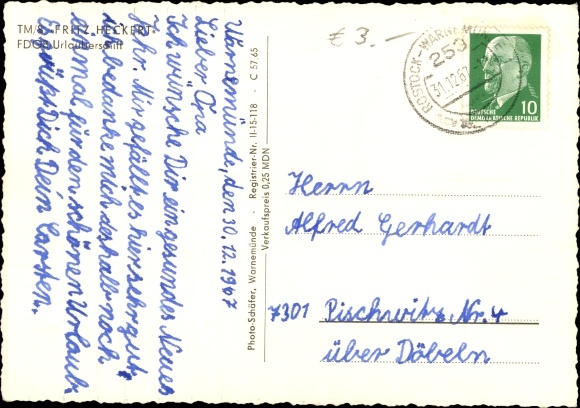 TM/S „FRITZ HECKERT"
FDGB Urlauberschiff
Warnemünde, den 30.12.1967
Lieber Opa
Ich wünsche Dir ein gesundes Neues
Jahr. Mir gefällt es hier sehr gut,
ich bedanke mich deshalb noch
einmal für den schönen Urlaub.
Es grüßt Dich Dein Carsten.
Photo-Schäfer, Warnemünde · Registrier-Nr. II-15-118 · C 57.65
Verkaufspreis 0,25 MDN
€ 3.—
ROSTOCK-WARNEMÜNDE
253
31.12.67
DEUTSCHE
DEMOKRATISCHE REPUBLIK
10
Herrn
Alfred Gerhardt
7301 Pischwitz Nr. 4
über Döbeln